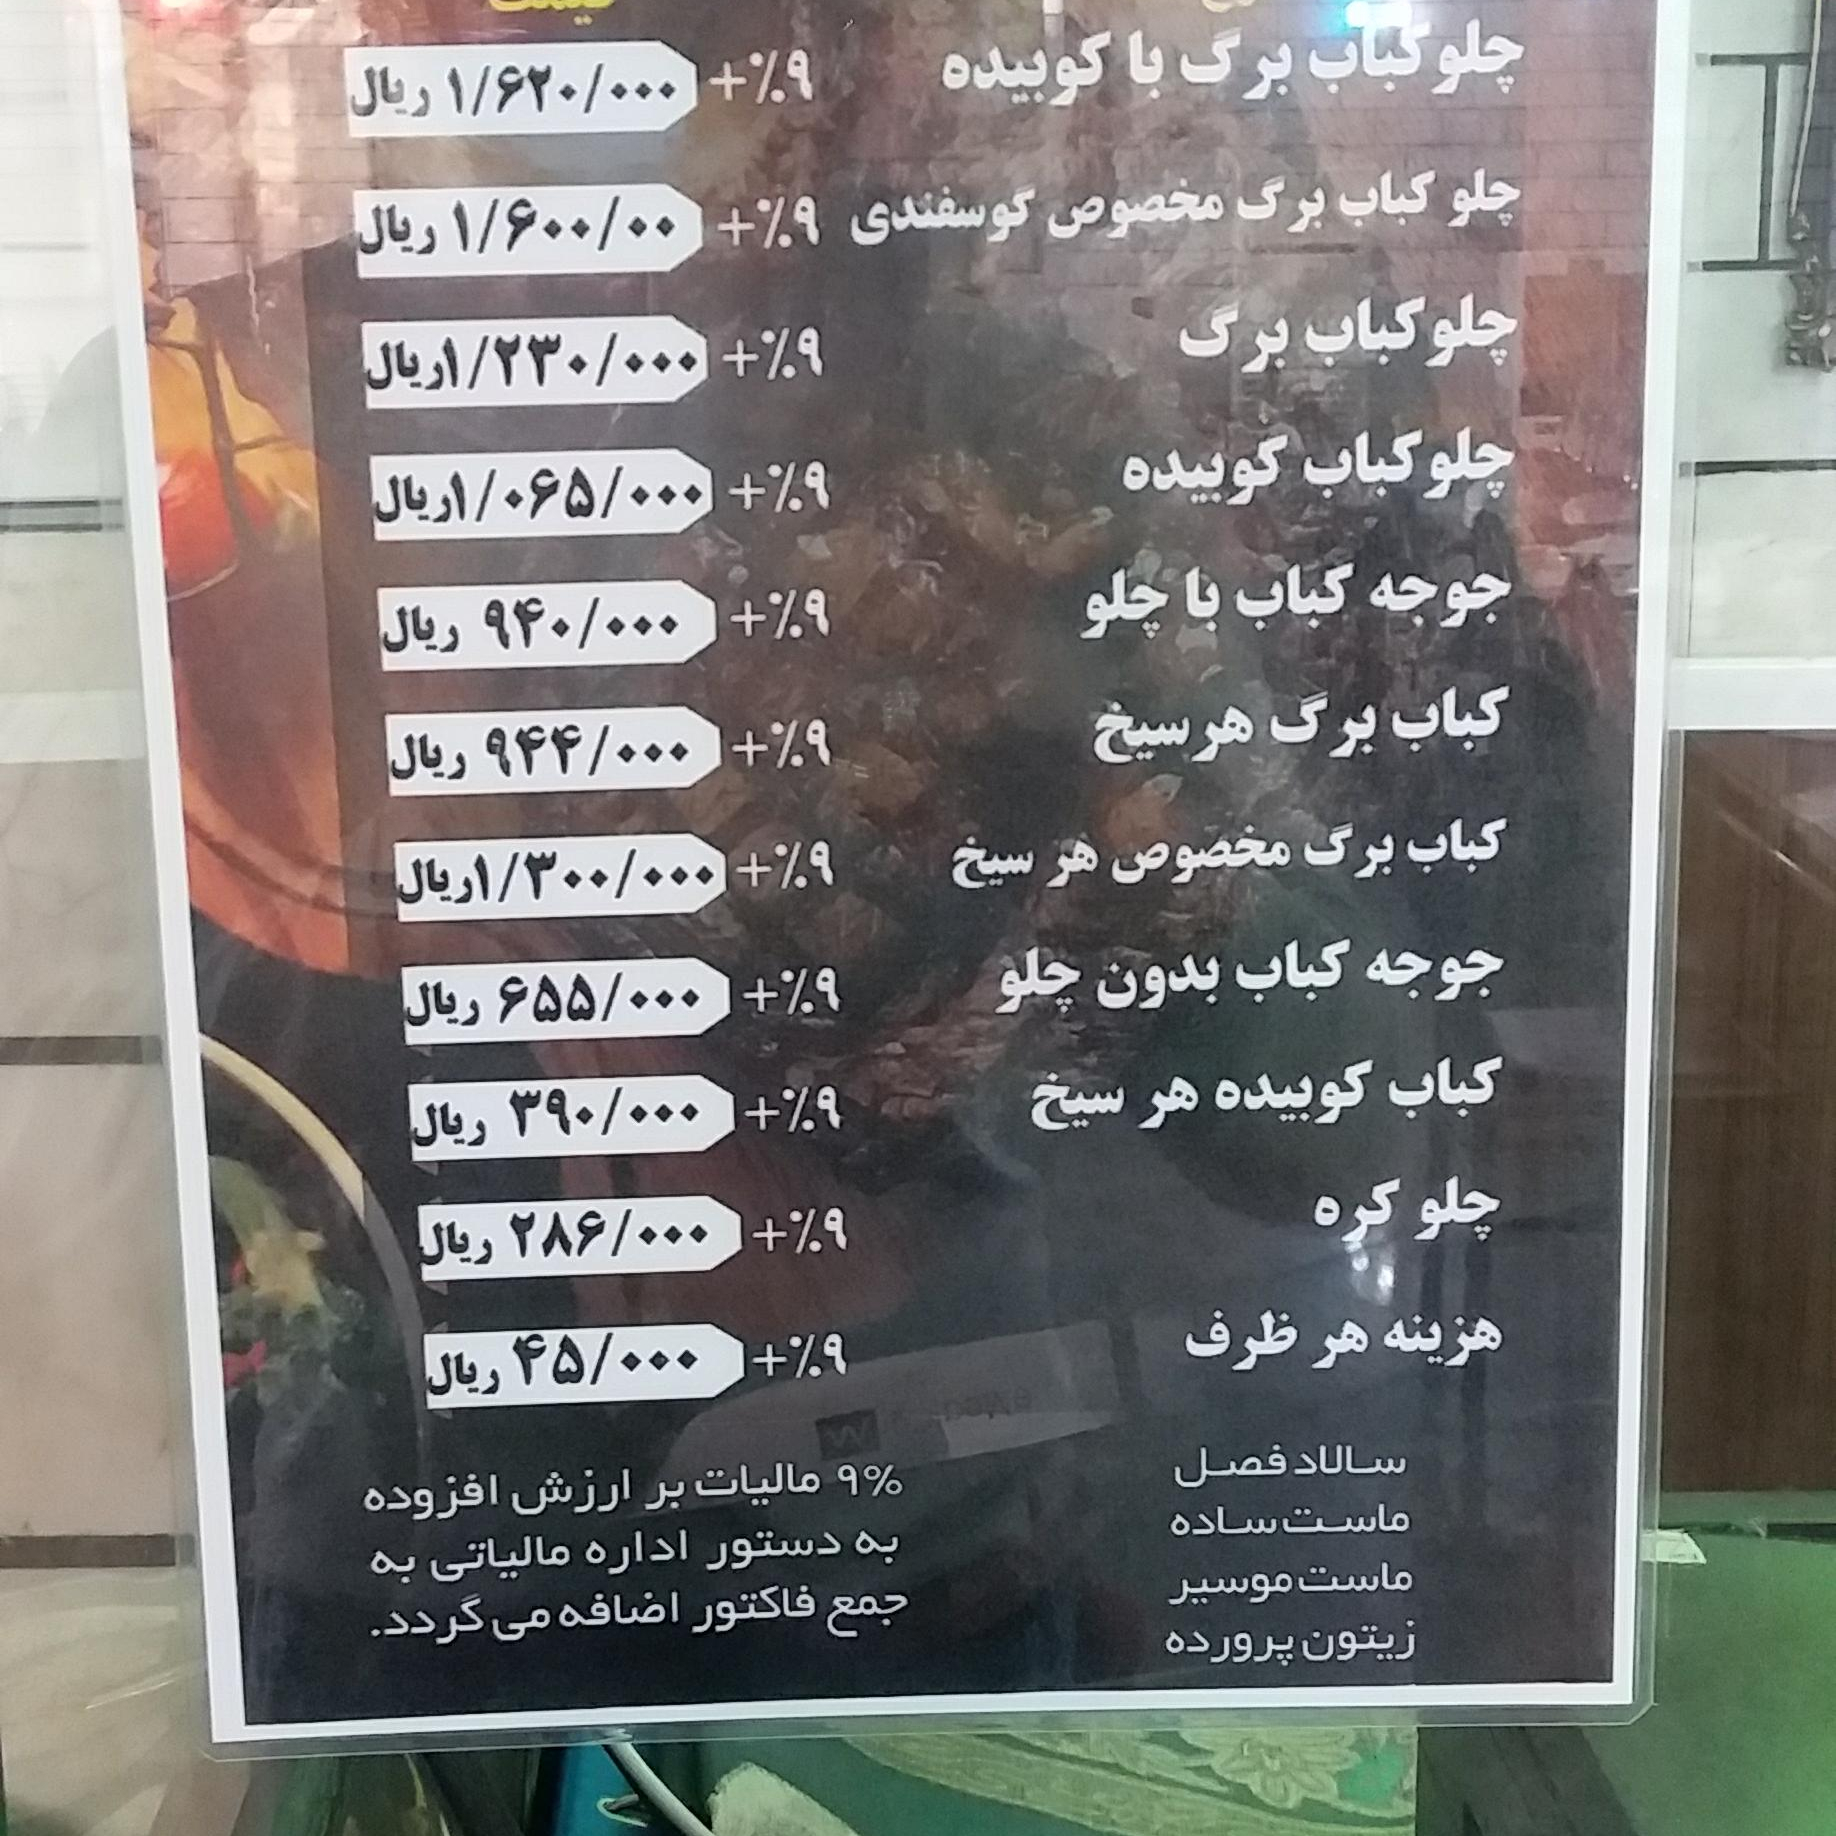 قیمت
چلوکباب برگ با کوبیده +٪۹ ۱/۶۲۰/۰۰۰ ریال
چلو کباب برگ مخصوص گوسفندی +٪۹ ۱/۶۰۰/۰۰ ریال
چلوکباب برگ +٪۹ ۱/۲۳۰/۰۰۰ریال
چلوکباب کوبیده +٪۹ ۱/۰۶۵/۰۰۰ریال
جوجه کباب با چلو +٪۹ ۹۴۰/۰۰۰ ریال
کباب برگ هرسیخ +٪۹ ۹۴۴/۰۰۰ ریال
کباب برگ مخصوص هر سیخ +٪۹ ۱/۳۰۰/۰۰۰ریال
جوجه کباب بدون چلو +٪۹ ۶۵۵/۰۰۰ ریال
کباب کوبیده هر سیخ +٪۹ ۳۹۰/۰۰۰ ریال
چلو کره +٪۹ ۲۸۶/۰۰۰ ریال
هزینه هر ظرف +٪۹ ۴۵/۰۰۰ ریال
سالاد فصل
ماست ساده
ماست موسیر
زیتون پرورده
۹% مالیات بر ارزش افزوده
به دستور اداره مالیاتی به
جمع فاکتور اضافه می گردد.